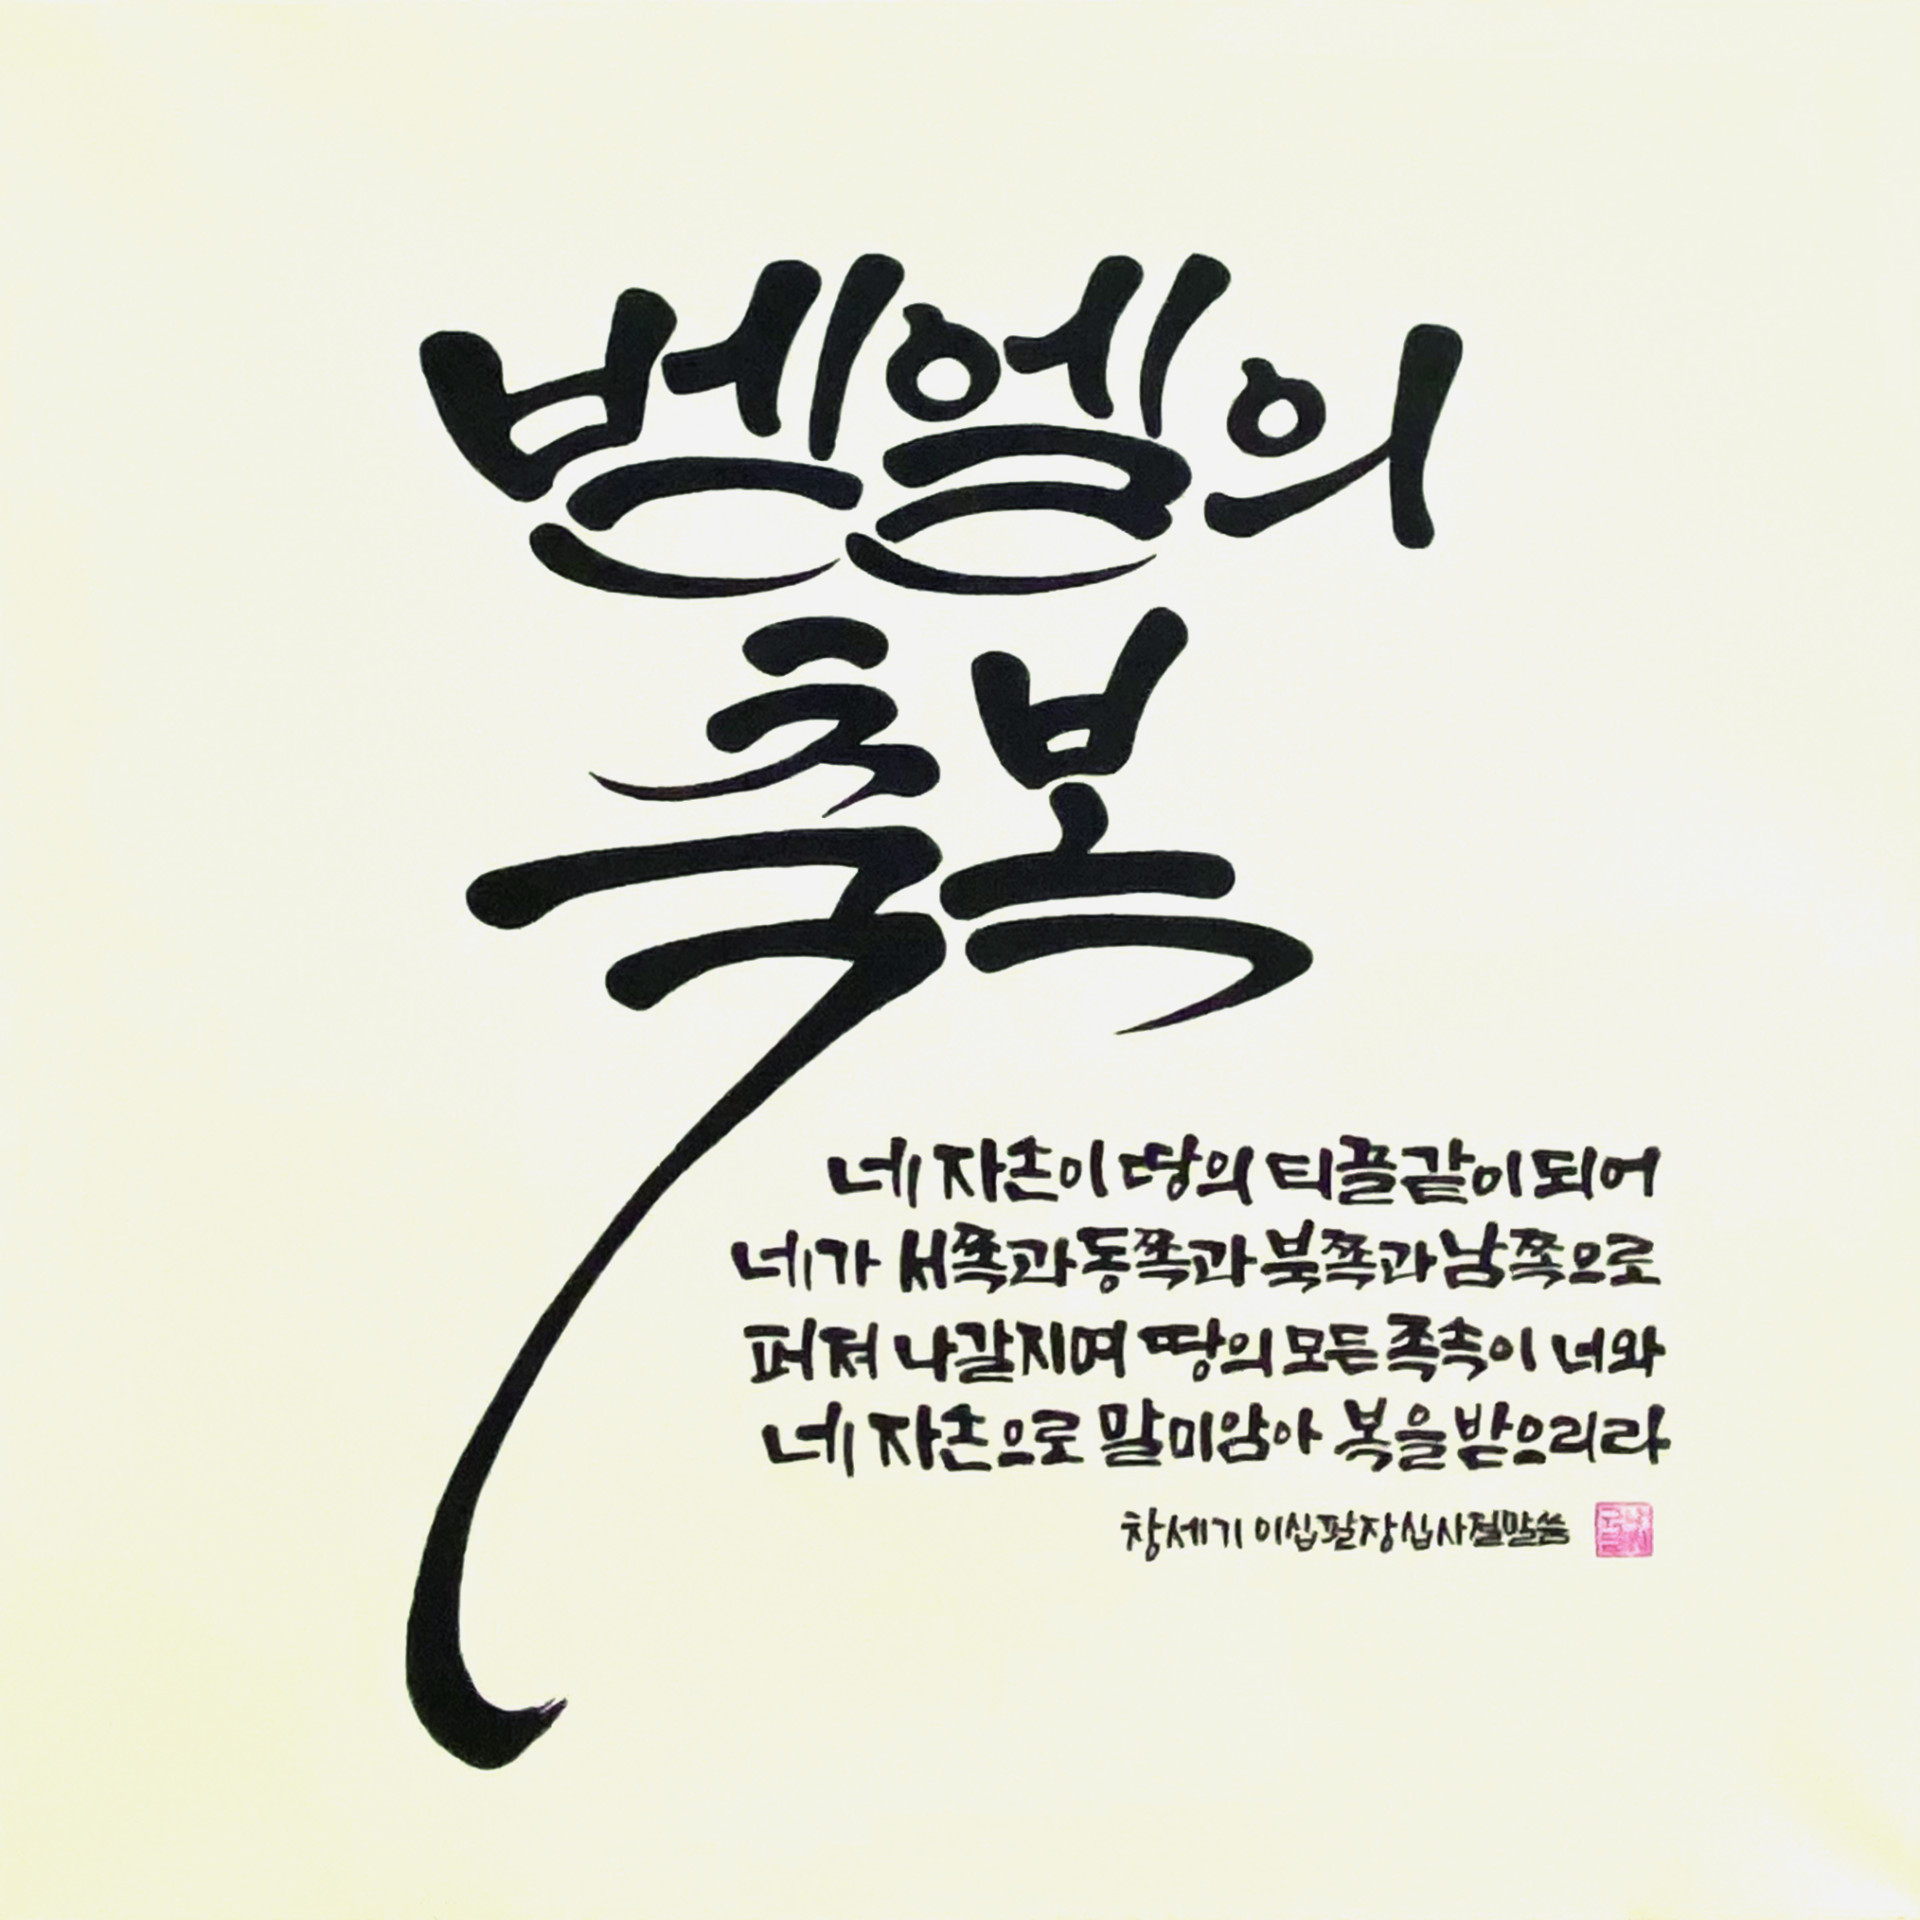 벧엘의
축복
네 자손이 땅의 티끌같이 되어
네가 서쪽과 동쪽과 북쪽과 남쪽으로
퍼져 나갈지며 땅의 모든 족속이 너와
네 자손으로 말미암아 복을 받으리라
창세기 이십팔장 십사절 말씀